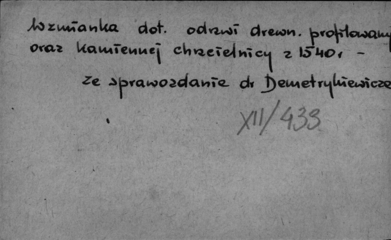 Wzmianka dot. odrzwi drewn. profilowany
oraz kamiennej chrzcielnicy z 1540r –
ze sprawozdanie dr Demetrykiewicze
XII/433